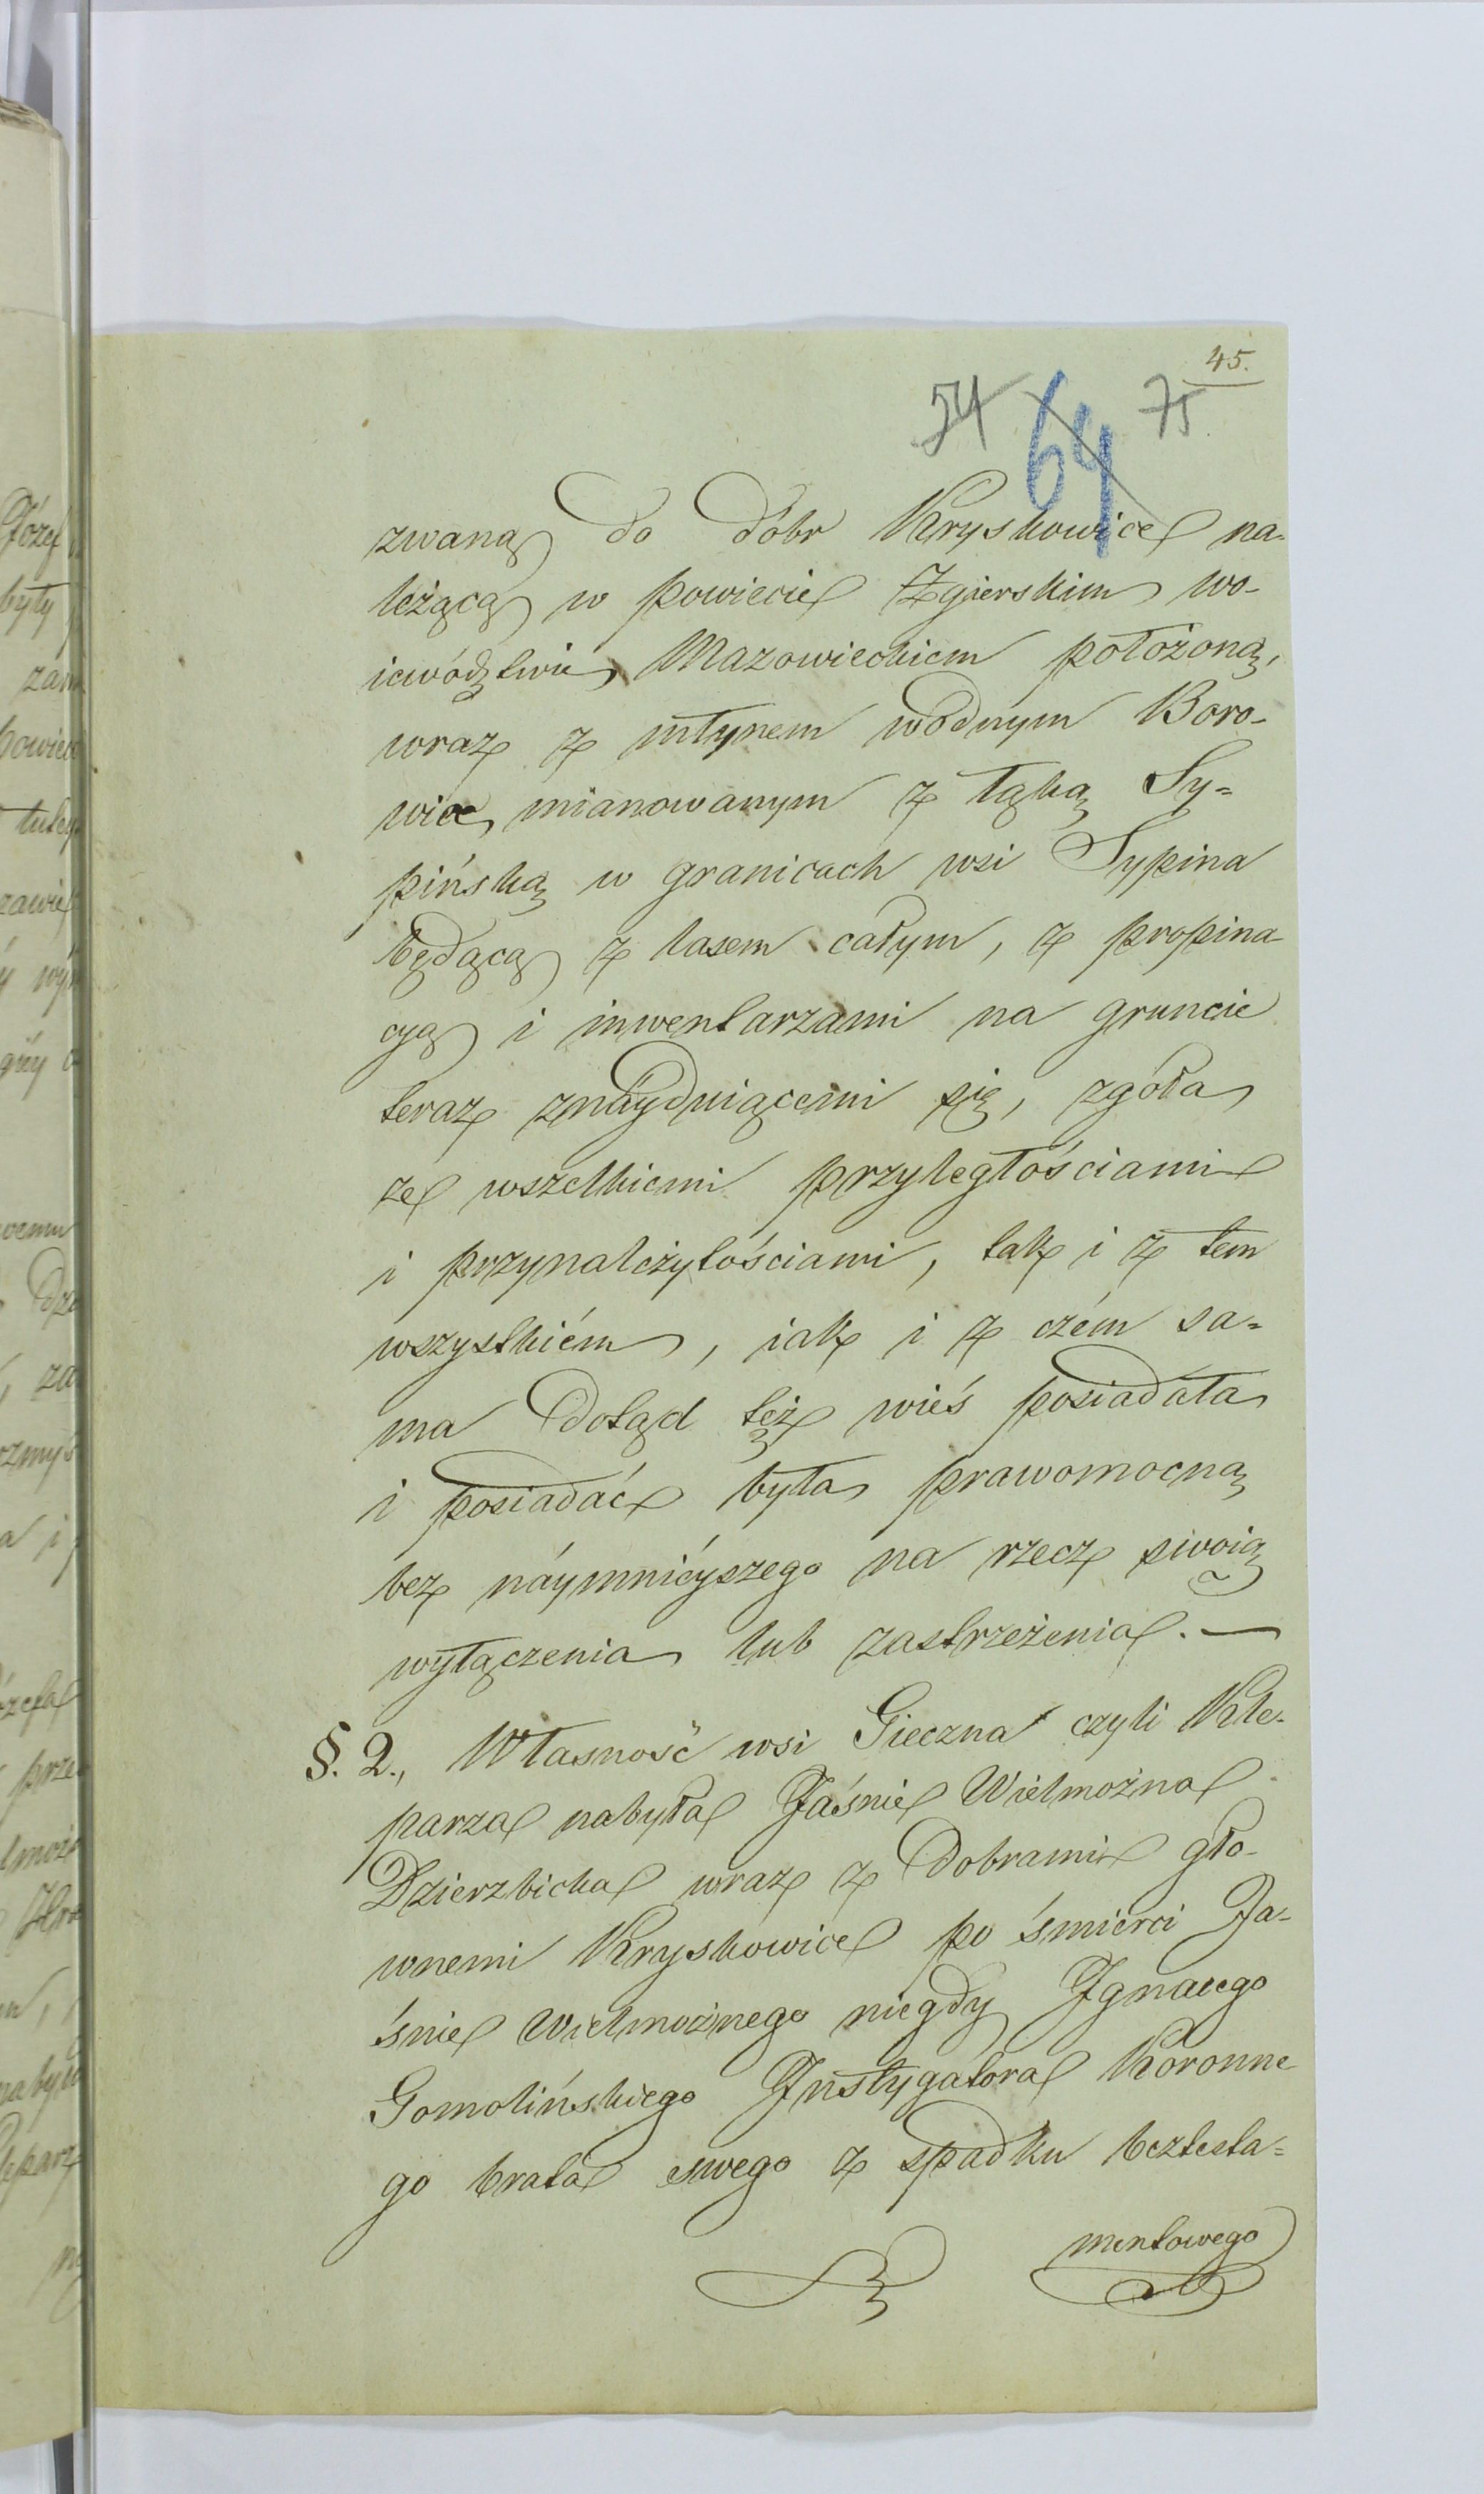 45.
54 64 75.
zwaną do dóbr Kryskowice na-
leżącą w powiecie Zgierskim wo-
iewództwie Mazowieckiem położoną,
wraz z młynem wodnym Boro-
wiec mianowanym z łąką Sy-
pińską w granicach wsi Sypina
będącą z lasem całym, z propina-
cyą i inwentarzami na gruncie
teraz znáyduiącemi się, zgoła
ze wszelkiemi przyległościami
i przynależytościami, tak i z tem
wszystkiém, iak i z czém sa-
ma dotąd też wieś posiadała
i posiadać była prawomocną
bez náymnieyszego na rzecz swoią
wyłączenia lub zastrzeżenia. —
§. 2., Własność wsi Gieczna czyli Kle-
parza nabyła Jaśnie Wielmożna
Dzierzbicka wraz z Dobrami głó-
wnemi Kryskowice po śmierci Ja-
śnie Wielmożnego niegdy Ignacego
Gomolińskiego Instygatora Koronne
go brata swego z spadku beztesta-
mentowego